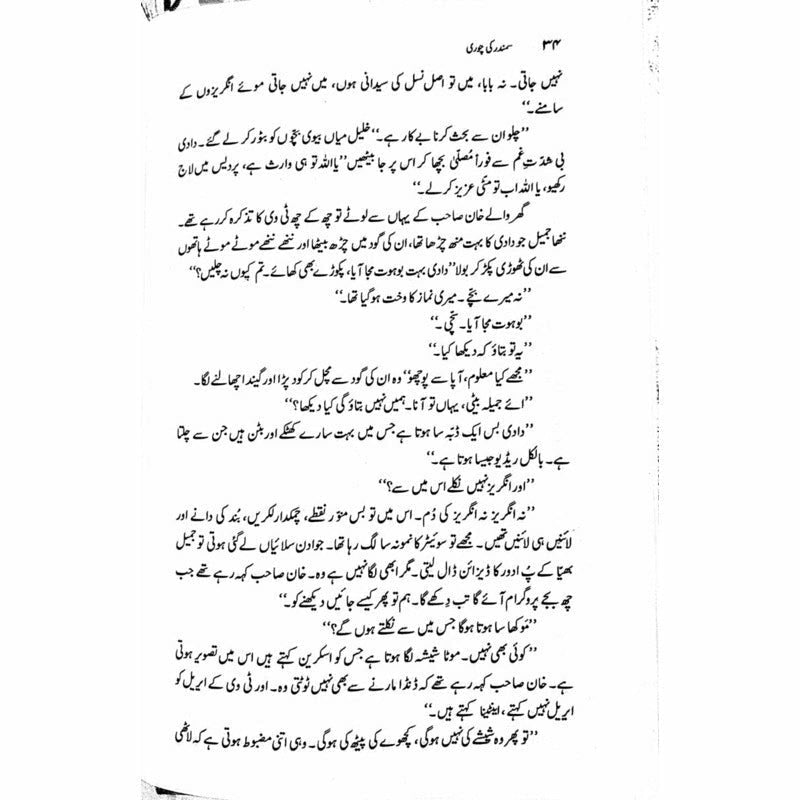 ۳۴ سمندر کی چوری
نہیں جاتی۔ نہ بابا، میں تو اصل نسل کی سیدانی ہوں، میں نہیں جاتی موئے انگریزوں کے
سامنے۔‘‘
’’چلو ان سے بحث کرنا بے کار ہے۔‘‘ خلیل میاں بیوی بچّوں کو بٹور کر لے گئے۔ دادی
بی شدّتِ غم سے فوراً مُصلّیٰ بچھا کر اس پر جا بیٹھیں ’’یا اللہ تو ہی وارث ہے، پردیس میں لاج
رکھیو، یا اللہ اب تو مٹی عزیز کر لے۔‘‘
گھر والے خان صاحب کے یہاں سے لوٹے تو چھ کے چھ ٹی وی کا تذکرہ کر رہے تھے۔
ننھا جمیل جو دادی کا بہت منھ چڑھا تھا، ان کی گود میں چڑھ بیٹھا اور ننھے ننھے موٹے موٹے ہاتھوں
سے ان کی ٹھوڑی پکڑ کر بولا ’’دادی بہت بوہوت مجا آیا، پکوڑے بھی کھائے۔ تم کیوں نہ چلیں؟‘‘
’’نہ میرے بچّے۔ میری نماز کا وخت ہو گیا تھا۔‘‘
’’بوہوت مجا آیا۔ سچّی۔‘‘
’’یہ تو بتاؤ کہ دیکھا کیا۔‘‘
’’مجھے کیا معلوم، آپا سے پوچھو‘‘ وہ ان کی گود سے مچل کر کود پڑا اور گیند اچھالنے لگا۔
’’اے جمیلہ بیٹی، یہاں تو آنا۔ ہمیں نہیں بتاؤ گی کیا دیکھا؟‘‘
’’دادی بس ایک ڈبّہ سا ہوتا ہے جس میں بہت سارے کھٹکے اور بٹن ہیں جن سے چلتا
ہے۔ بالکل ریڈیو جیسا ہوتا ہے۔‘‘
’’اور انگریز نہیں نکلے اس میں سے؟‘‘
’’نہ انگریز نہ انگریز کی دُم۔ اس میں تو بس منوّر نقطے، چمکدار لکریں، بُند کی دانے اور
لائنیں ہی لائنیں تھیں۔ مجھے تو سوئیٹر کا نمونہ سا لگ رہا تھا۔ جو ادن سلائیاں لے گئی ہوتی تو جمیل
بھیّا کے پُ ادور کا ڈیزائن ڈال لیتی۔ مگر ابھی لگا نہیں ہے وہ۔ خان صاحب کہہ رہے تھے جب
چھ بجے پروگرام آئے گا تب دِکھے گا۔ ہم تو پھر کیسے جائیں دیکھنے کو۔‘‘
’’مَوکھا سا ہوتا ہوگا جس میں سے نکلتے ہوں گے؟‘‘
’’کوئی بھی نہیں۔ موٹا شیشہ لگا ہوتا ہے جس کو اسکرین کہتے ہیں اس میں تصویر ہوتی
ہے۔ خان صاحب کہہ رہے تھے کہ ڈنڈا مارنے سے بھی نہیں ٹوٹتی وہ۔ اور ٹی وی کے ایریل کو
ایریل نہیں کہتے، اینٹینا کہتے ہیں۔‘‘
’’تو پھر وہ شیشے کی نہیں ہوگی، کچھوے کی پیٹھ کی ہوگی۔ وہی اتنی مضبوط ہوتی ہے کہ لاٹھی